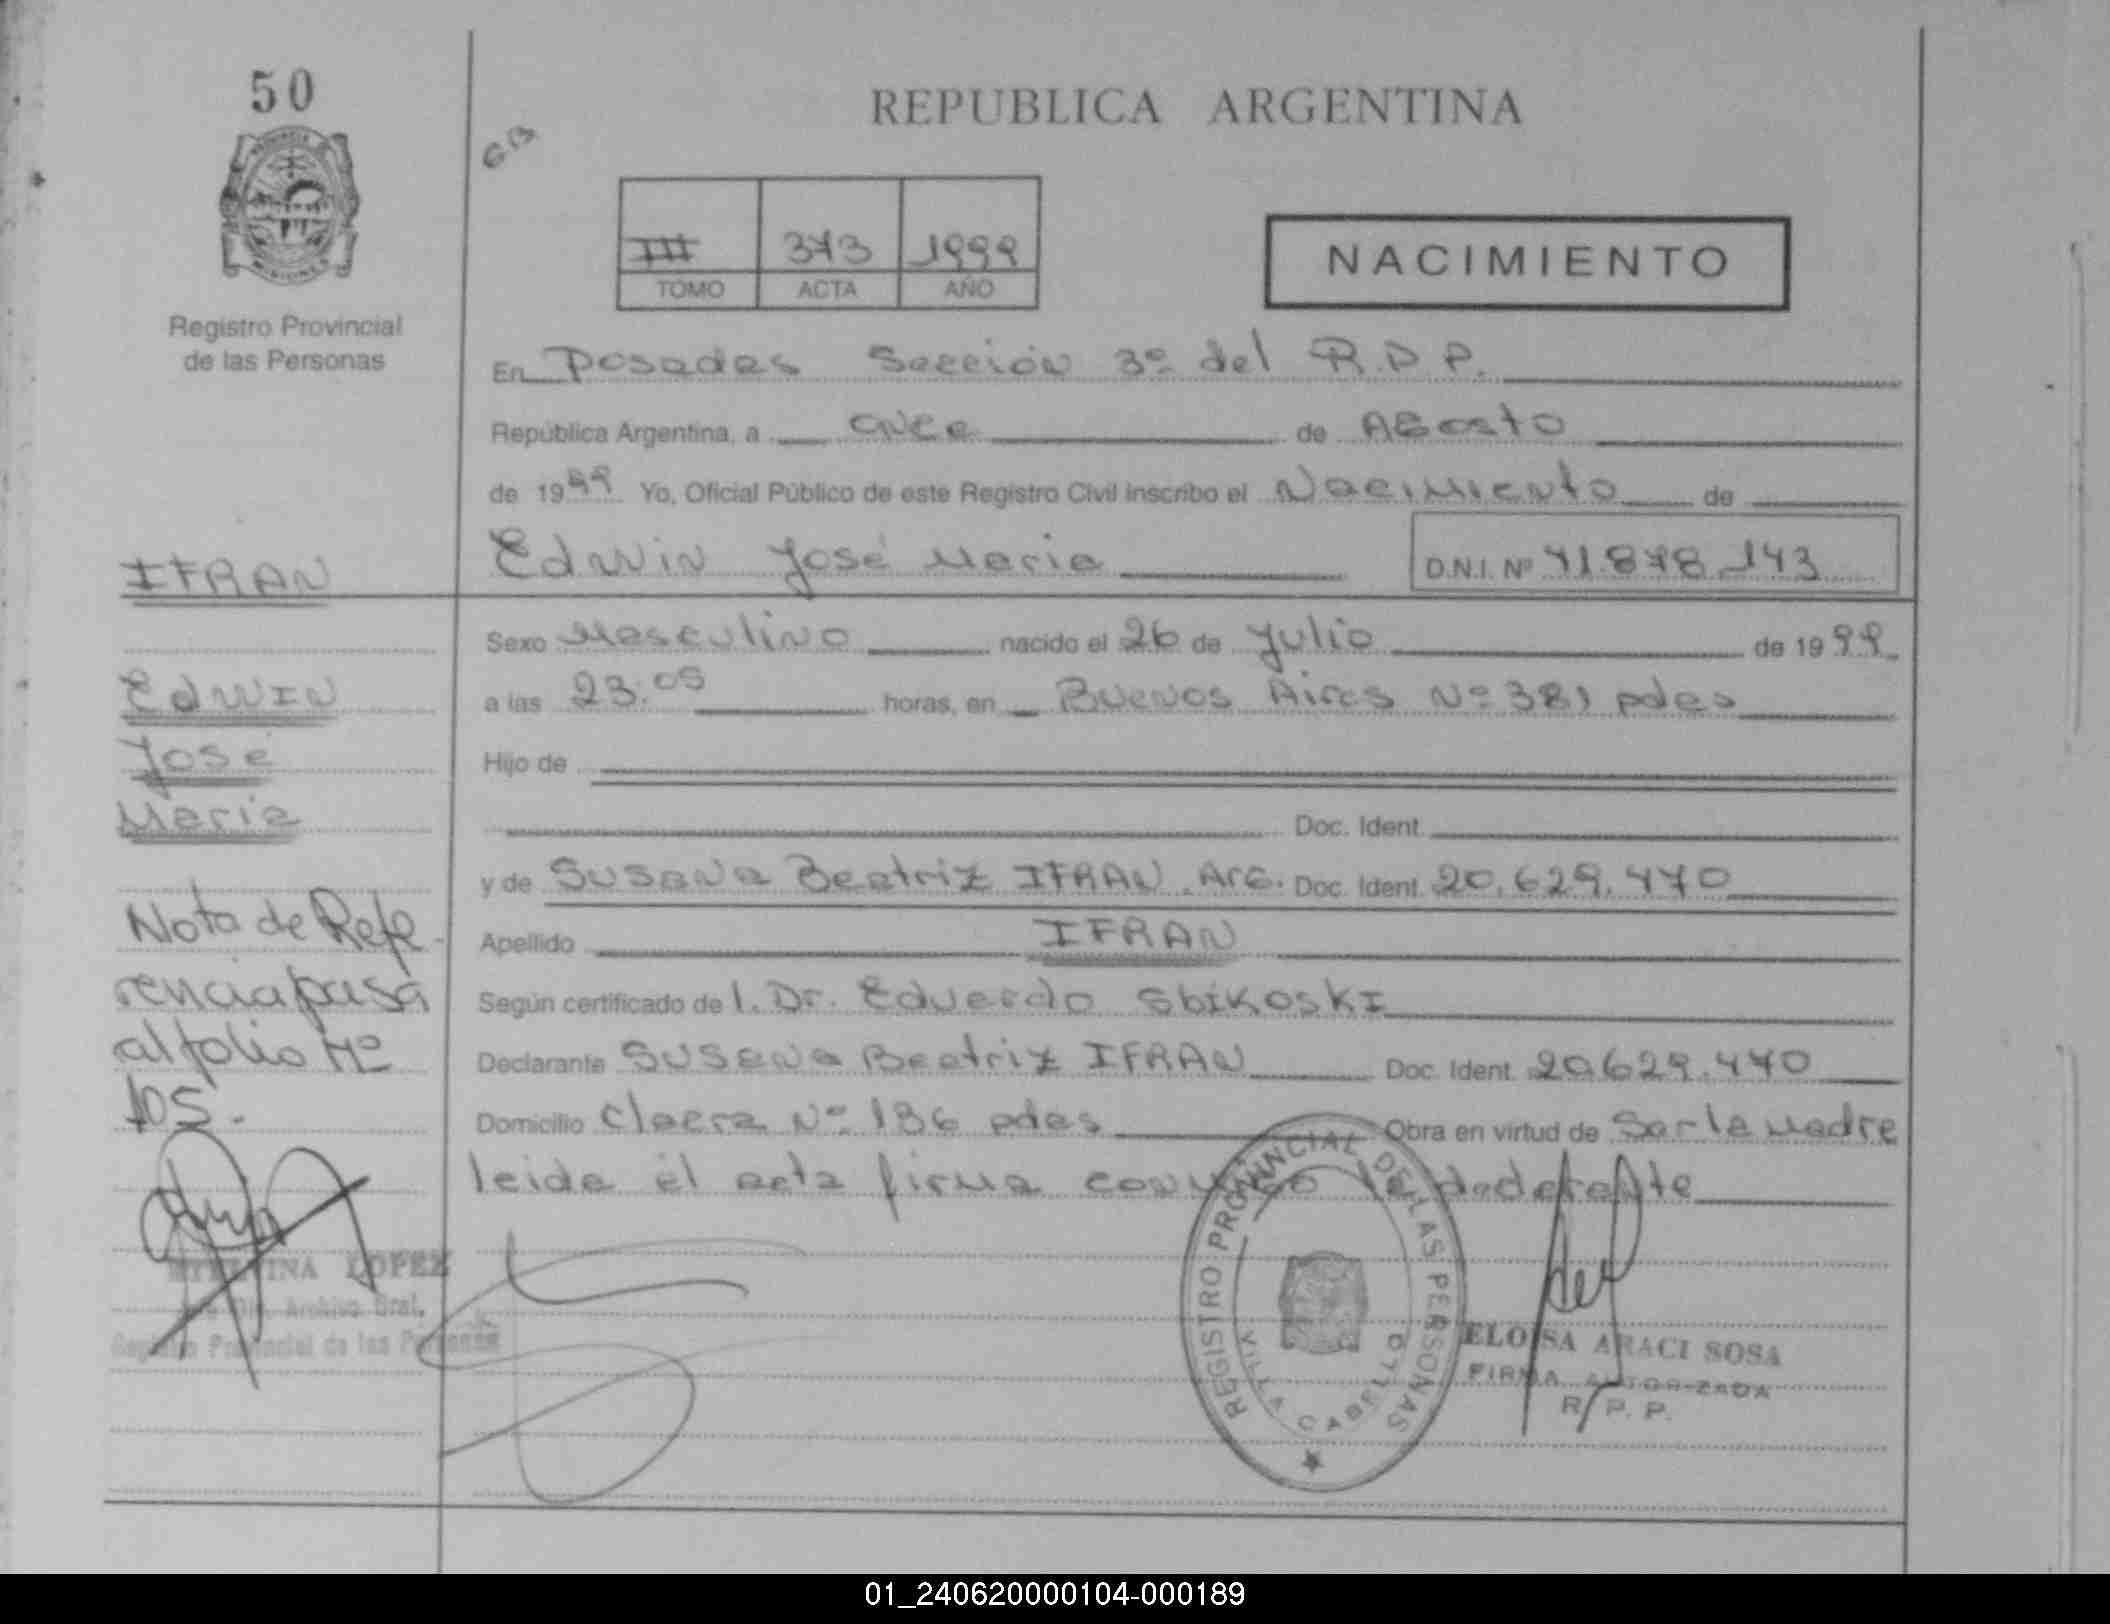 50
REPUBLICA ARGENTINA
III 373 1999
TOMO ACTA AÑO
NACIMIENTO
Registro Provincial
de las Personas
En Posadas Sección 3º del R.P.P.
República Argentina, a once de Agosto
de 1999 Yo, Oficial Público de este Registro Civil inscribo el Nacimiento de
Edwin José Maria D.N.I. Nº 41.878.143
IFRAN
Edwin
José
Maria
Sexo Masculino nacido el 26 de Julio de 1999
a las 23:05 horas, en Buenos Aires Nº 381 pdas
Hijo de
Doc. Ident.
y de Susana Beatriz IFRAN. Arg. Doc. Ident. 20.629.470
Apellido IFRAN
Según certificado de l. Dr. Eduardo Sbikoski
Declarante Susana Beatriz IFRAN Doc. Ident. 20.629.470
Domicilio Nº 136 pdas Obra en virtud de Ser la madre
leida el acta firma conmigo la declarante
Nota de Refe-
rencia pasa
al folio Nº
105.
LOPEZ
Archivo Gral.
Registro Provincial de las Personas
REGISTRO PROVINCIAL DE LAS PERSONAS
VILLA CABELLO
ELOISA ARACI SOSA
FIRMA AUTORIZADA
R. P. P.
01_240620000104-000189